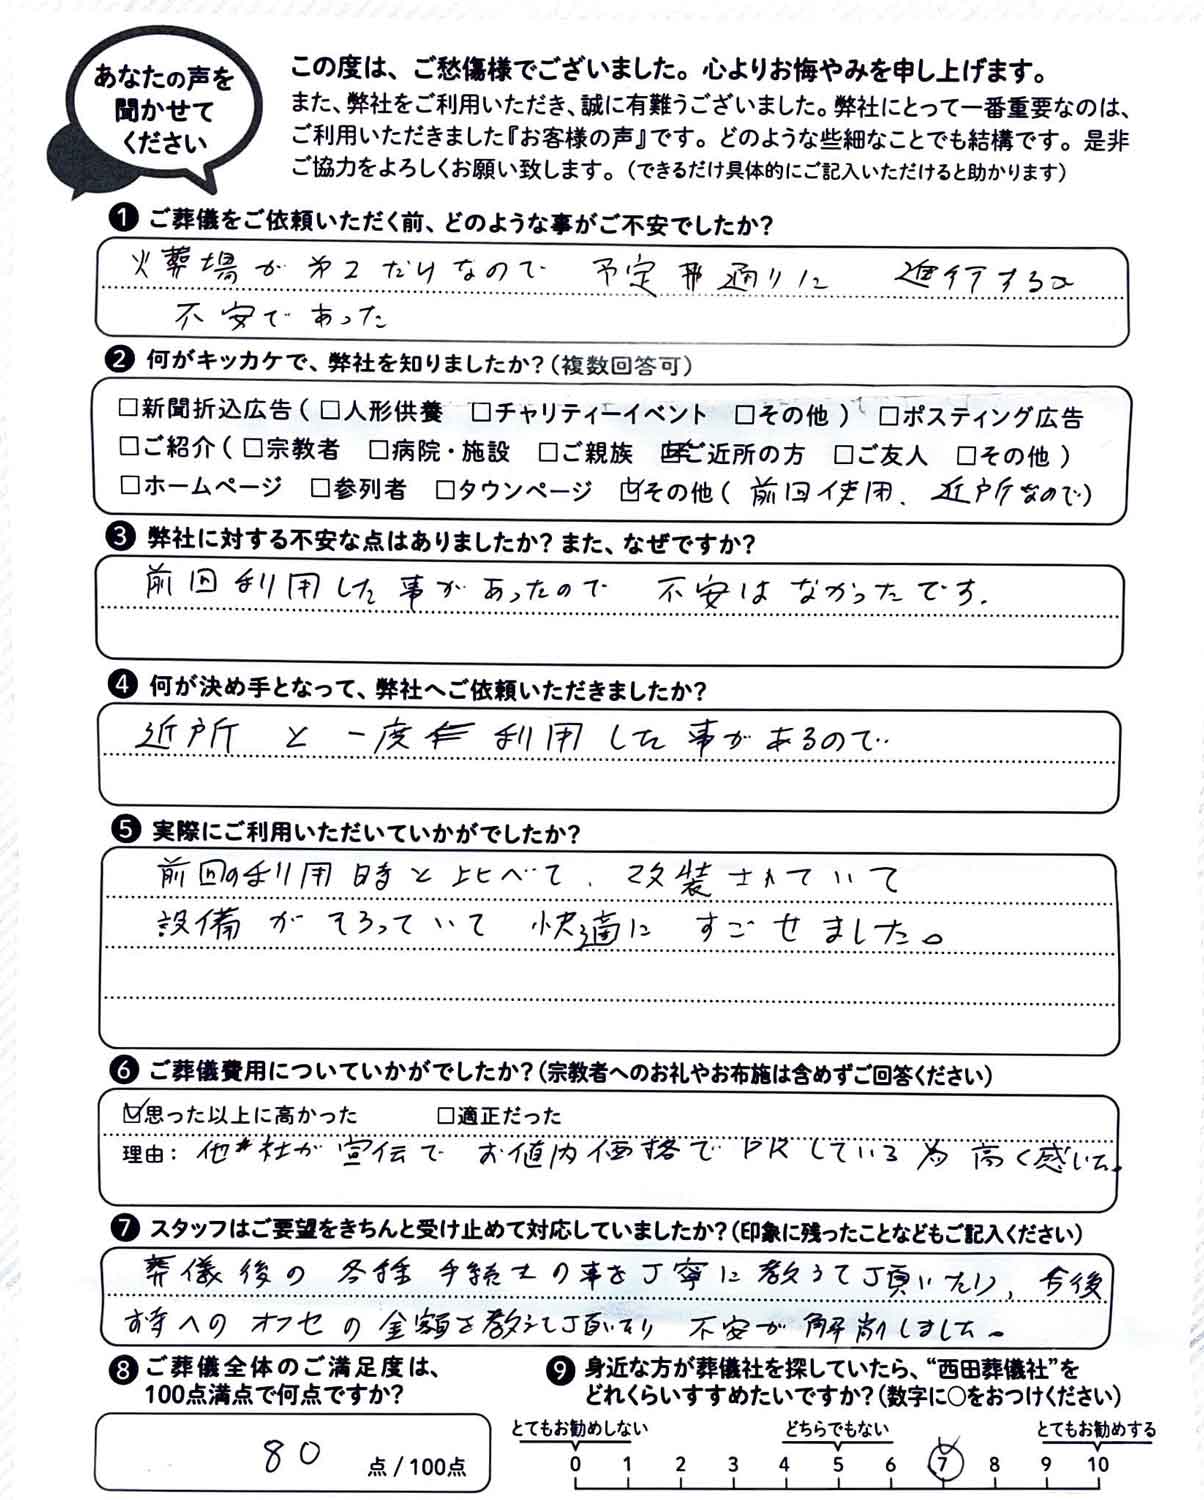 あなたの声を
聞かせて
ください
この度は、ご愁傷様でございました。心よりお悔やみを申し上げます。
また、弊社をご利用いただき、誠に有難うございました。弊社にとって一番重要なのは、
ご利用いただきました『お客様の声』です。どのような些細なことでも結構です。是非
ご協力をよろしくお願い致します。（できるだけ具体的にご記入いただけると助かります）
❶ ご葬儀をご依頼いただく前、どのような事がご不安でしたか？
火葬場が 2だけなので 予定通りに 進行するか
不安であった
❷ 何がキッカケで、弊社を知りましたか？（複数回答可）
□新聞折込広告（ □人形供養 □チャリティーイベント □その他 ） □ポスティング広告
□ご紹介（ □宗教者 □病院・施設 □ご親族 ご近所の方 □ご友人 □その他 ）
□ホームページ □参列者 □タウンページ ☑その他（ 前回使用、近所なので）
❸ 弊社に対する不安な点はありましたか？また、なぜですか？
前回利用した事があったので 不安はなかったです.
❹ 何が決め手となって、弊社へご依頼いただきましたか？
近所 と 一度 利用した事があるので.
❺ 実際にご利用いただいていかがでしたか？
前回の利用時と比べて、改装されていて
設備がそろっていて 快適に すごせました。
❻ ご葬儀費用についていかがでしたか？（宗教者へのお礼やお布施は含めずご回答ください）
☑思った以上に高かった □適正だった
理由： 他社が宣伝で お値内価格でPRしている為 高く感じた。
❼ スタッフはご要望をきちんと受け止めて対応していましたか？（印象に残ったことなどもご記入ください）
葬儀後の各種手続きの事を丁寧に教えて頂いたり、今後
お寺へのオフセの金額を教えて頂いたり 不安が解消しました。
❽ ご葬儀全体のご満足度は、
100点満点で何点ですか？
80 点 / 100点
❾ 身近な方が葬儀社を探していたら、“西田葬儀社”を
どれくらいすすめたいですか？（数字に○をおつけください）
とてもお勧めしない どちらでもない とてもお勧めする
0 1 2 3 4 5 6 7 8 9 10